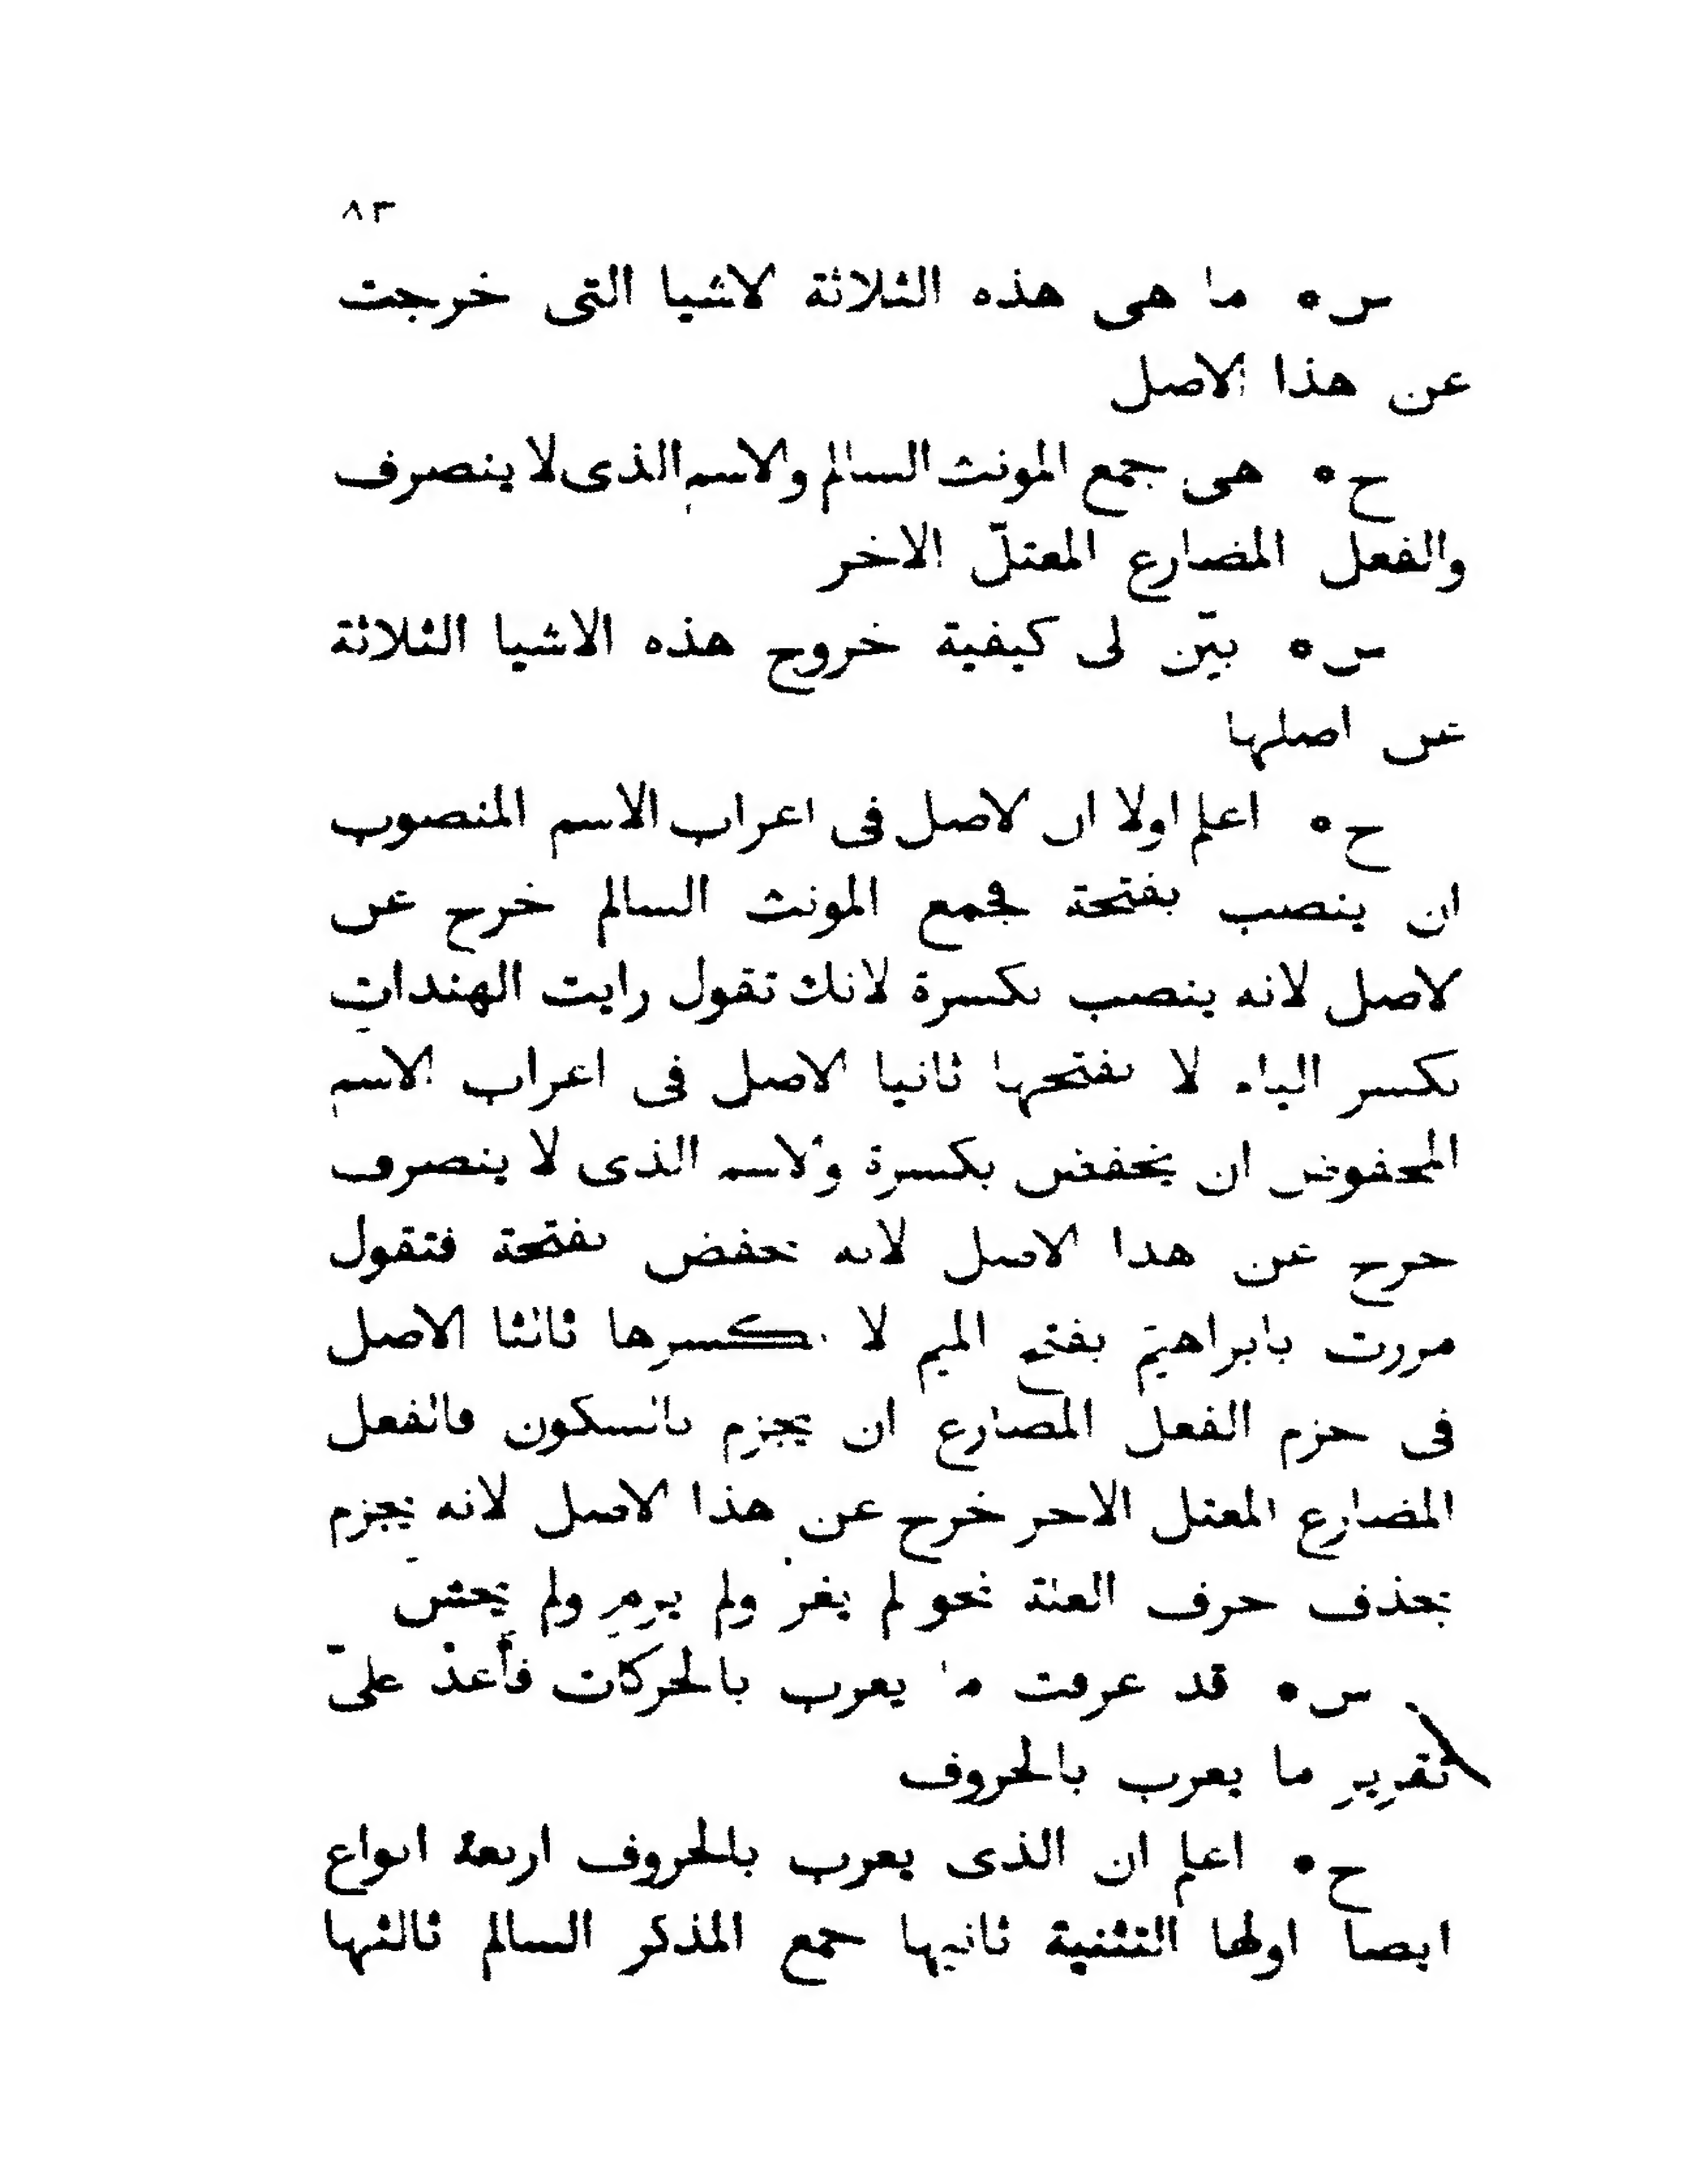 ٨٣
س • ما هى هذه الثلاثة الاشيا التى خرجت
عن هذا الاصل
ج • هى جمع المونث السالم والاسم الذى لا ينصرف
والفعل المضارع المعتلّ الاخر
س • بيّن لى كيفية خروج هذه الاشيا الثلاثة
عن اصلها
ج • اعلم اولا ان الاصل فى اعراب الاسم المنصوب
ان ينصب بفتحة فجمع المونث السالم خرج عن
الاصل لانه ينصب بكسرة لانك تقول رايت الهنداتِ
بكسر التاء لا بفتحها ثانيا الاصل فى اعراب الاسم
المخفوض ان يخفض بكسرة والاسم الذى لا ينصرف
خرج عن هذا الاصل لانه يخفض بفتحة فتقول
مررت بابراهيمَ بفتح الميم لا بكسرها ثالثا الاصل
فى جزم الفعل المضارع ان يجزم بالسكون فالفعل
المضارع المعتل الاخر خرج عن هذا الاصل لانه يجزم
بحذف حرف العلة نحو لم يغزُ ولم يرمِ ولم يخشَ
س • قد عرفت ما يعرب بالحركات فأَعدْ علىّ
تقرير ما يعرب بالحروف
ج • اعلم ان الذى يعرب بالحروف اربعة انواع
ايضا اولها التثنية ثانيها جمع المذكر السالم ثالثها